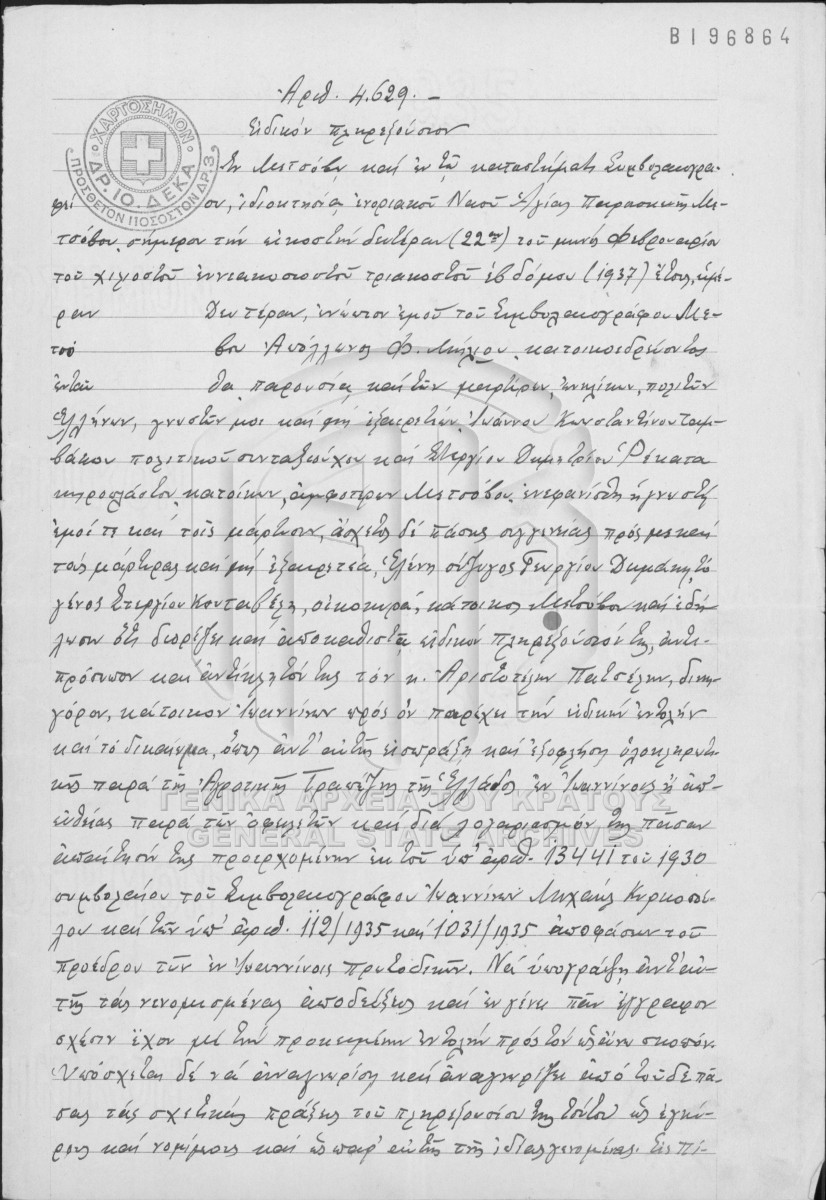 Β196864
Ἀριθ. 4.629.-
Εἰδικόν πληρεξούσιον
ΧΑΡΤΟΣΗΜΟΝ
ΔΡ. 10. ΔΕΚΑ
ΠΡΟΣΘΕΤΟΝ ΠΟΣΟΣΤΟΝ ΔΡ. 3
Ἐν Μετσόβῳ καί ἐν τῷ καταστήματι Συμβολαιογρα-
φεί ου, ἰδιοκτησίᾳ ἐνοριακοῦ Ναοῦ Ἁγίας Παρασκευῆς Με-
τσόβου, σήμερον τήν εἰκοστήν δευτέραν (22αν) τοῦ μηνός Φεβρουαρίου
τοῦ χιλιοστοῦ ἐννεακοσιοστοῦ τριακοστοῦ ἑβδόμου (1937) ἔτους, ἡμέ-
ραν Δευτέραν, ἐνώπιον ἐμοῦ τοῦ Συμβολαιογράφου Με-
τσό βου Ἀπόλλωνος Φ. Μίλιου, κατοικοεδρεύοντος
ἐνταῦ θα παρουσίᾳ καί τῶν μαρτύρων, ἐνηλίκων, πολιτῶν
Ἑλλήνων, γνωστῶν μοι καί μή ἐξαιρετέων, Ἰωάννου Κωνσταντίνου Ταμ-
βάκου πολιτικοῦ συνταξιούχου καί Στεργίου Δημητρίου Ρέκατα
κηροπλάστου, κατοίκων ἀμφοτέρων Μετσόβου, ἐνεφανίσθη ἡ γνωστή
ἐμοί τε καί τοῖς μάρτυσιν, ἄσχετος δέ πάσης συγγενείας πρός με καί
τούς μάρτυρας καί μή ἐξαιρετέα, Ἑλένη σύζυγος Γεωργίου Δημάκη, τό
γένος Στεργίου Κονταβέλη, οἰκοκυρά, κάτοικος Μετσόβου καί ἐδή-
λωσεν ὅτι διορίζει καί ἀποκαθιστᾷ εἰδικόν πληρεξούσιόν της, ἀντι-
πρόσωπον καί ἀντίκλητόν της τόν κ. Ἀριστοτέλην Πατσέλην, δικη-
γόρον, κάτοικον Ἰωαννίνων πρός ὅν παρέχει τήν εἰδικήν ἐντολήν
καί τό δικαίωμα, ὅπως ἀντ' αὐτῆς εἰσπράξῃ καί ἐξοφλήσῃ ὁλοκληρωτι-
κῶς παρά τῆς Ἀγροτικῆς Τραπέζης τῆς Ἑλλάδος ἐν Ἰωαννίνοις ἤ ἀπ'
ΓΕΝΙΚΑ ΑΡΧΕΙΑ ΤΟΥ ΚΡΑΤΟΥΣ
εὐθείας παρά τῶν ὀφειλετῶν καί διά λογαριασμόν της πᾶσαν
GENERAL STATE ARCHIVES
ἀπαίτησίν της προερχομένην ἐκ τοῦ ὑπ' ἀριθ. 13441 τοῦ 1930
συμβολαίου τοῦ Συμβολαιογράφου Ἰωαννίνων Μιχαήλ Κυρκοπού-
λου καί τῶν ὑπ' ἀριθ. 112/1935 καί 1031/1935 ἀποφάσεων τοῦ
προέδρου τῶν ἐν Ἰωαννίνοις πρωτοδικῶν. Νά ὑπογράψῃ ἀντ' αὐ-
τῆς τάς νενομισμένας ἀποδείξεις καί ἐν γένει πᾶν ἔγγραφον
σχέσιν ἔχον μέ τήν προκειμένην ἐντολήν πρός τόν ὡς ἄνω σκοπόν.
Ὑπόσχεται δέ νά ἀναγνωρίσῃ καί ἀναγνωρίζει ἀπό τοῦδε πά-
σας τάς σχετικάς πράξεις τοῦ πληρεξουσίου της τούτου ὡς ἐγκύ-
ρους καί νομίμους καί ὡς παρ' αὐτῆς τῆς ἰδίας γενομένας. Εἰς πί-